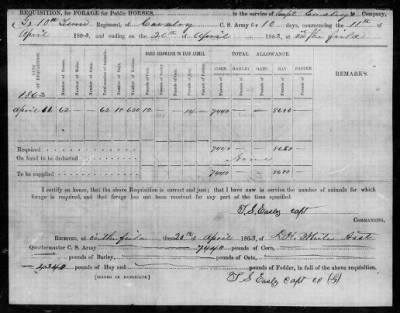 REQUISITION, FOR FORAGE for Public HORSES, in the service of Capt Easley's Company,
G, 10th Tenn Regiment, of Cavalry C. S. Army for 10 days, commencing the 11th of
April 1863, and ending on the 20th of April 1863, at In the field
DATE OF REQUISITION
Number of Horses.
Number of Mules.
Number of Oxen.
Total Number of Animals.
Number of Days.
Number of Rations.
DAILY ALLOWANCE TO EACH ANIMAL.
Pounds of Corn.
Pounds of Barley.
Pounds of Oats.
Pounds of Hay.
Pounds of Fodder.
TOTAL ALLOWANCE.
CORN
BARLEY
OATS
HAY
FODDER
REMARKS.
1863
April 11 62 — — 62 10 620 12 — — 14 — 7440 — — 8680
Required 7440 — — 8680
On hand to be deducted none
To be supplied 7440 — — 8680
I certify on honor, that the above Requisition is correct and just; that I have now in service the number of animals for which
forage is required, and that forage has not been received for any part of the time specified.
T. S. Easley Capt
COMMANDING.
RECEIVED, at In the field the 20th of April 1863, of White Asst
Quartermaster C. S. Army 7440 pounds of Corn, pounds of Oats,
pounds of Barley,
pounds of Hay and pounds of Fodder, in full of the above requisition.
[SIGNED IN DUPLICATE]
T. S. Easley Capt Co (G)